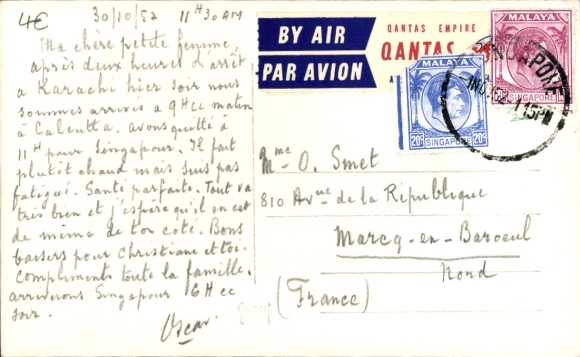 4€
30/10/52 11H30 AM
Ma chère petite femme,
après deux heures d'arrêt
a Karachi hier soir nous
sommes arrivés a 9H ce matin
à Calcutta. avons quitté à
11H pour Singapour. Il fait
plutôt chaud mais suis pas
fatigué. Santé parfaite. Tout va
très bien et j'espère qu'il en est
de même de ton coté. Bons
baisers pour Christiane et toi.
Compliments toute la famille.
arriverons Singapour 16H ce
soir.
Oscar.
BY AIR
PAR AVION
QANTAS EMPIRE
QANTAS
MALAYA
SINGAPORE
MALAYA
20c SINGAPORE 20c
SINGAPORE
1.15PM
Mme O. Smet
810 Avue de la République
Marcq-en-Baroeul
Nord
(France)